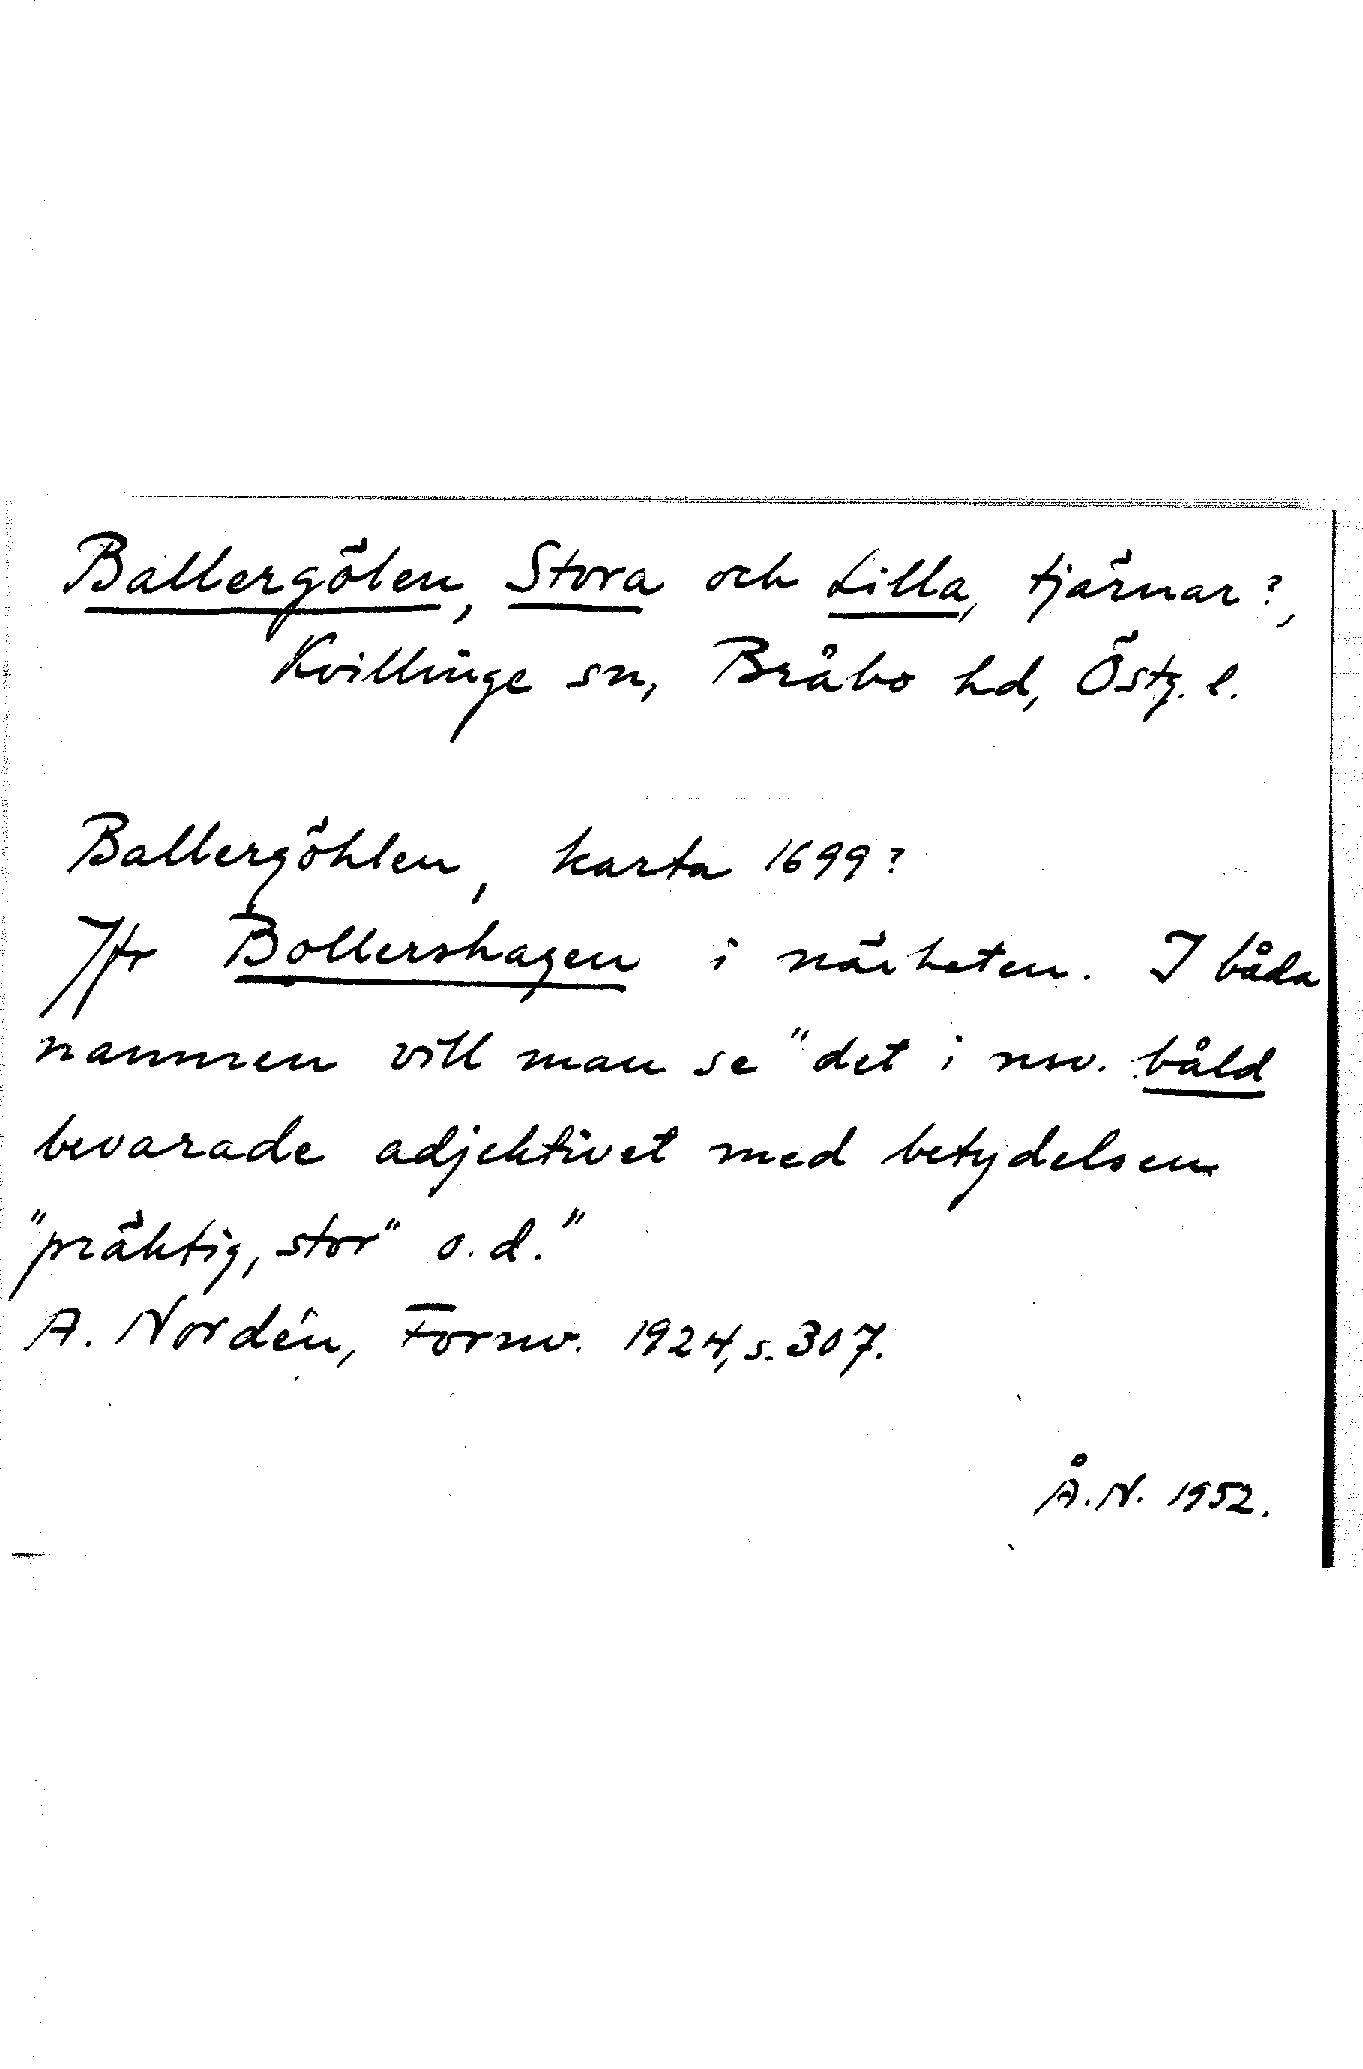 Ballergölen, Stora och Lilla, tjärnar?,
Kvillinge sn, Bråbo hd, Östg. l.
Ballergöhlen, karta 1699?
Jfr Bollershagen i närheten. I båda
namnen vill man se "det i nsv. båld
bevarade adjektivet med betydelsen
"präktig, stor" o.d."
A. Nordén, Fornv. 1924, s. 307.
Å.N. 1952.